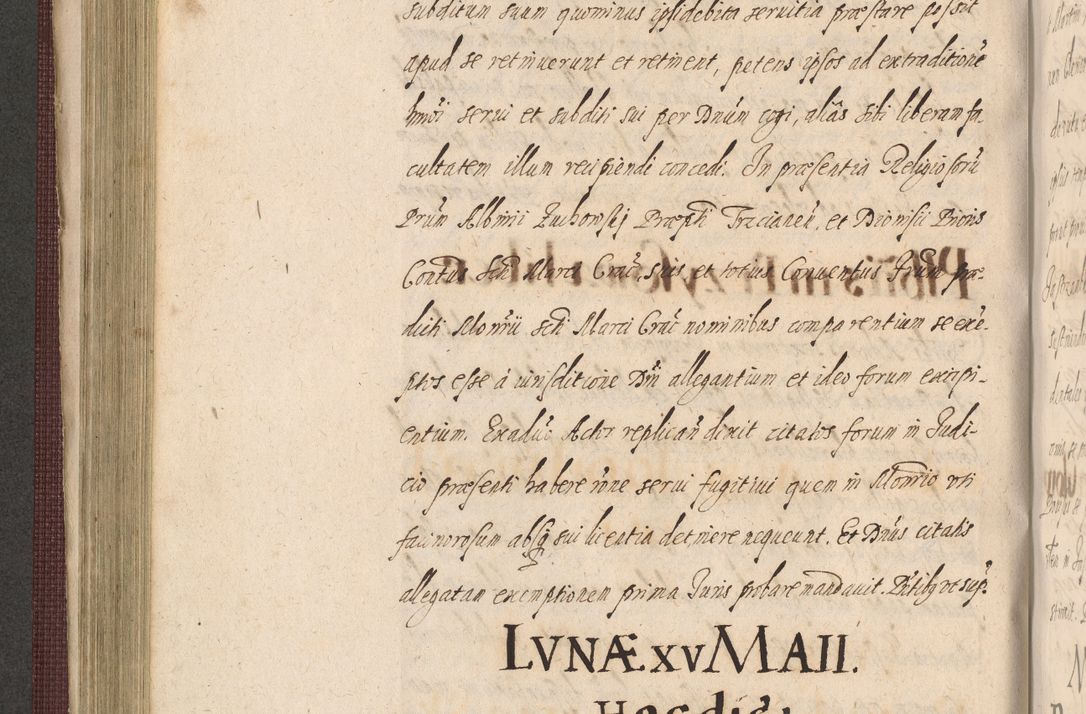 subditum suum quominus ipsi debita servitia præstare possit
apud se retinuerunt et retinent, petens ipsos ad extraditionē
hmōi servi et subditi sui per Dnūm cogi, aliās sibi liberam fa-
cultatem illum recipiendi concedi. In præsentia Religiosorū
Prūm Albini Zuchowskj Præpti Trecianeñ, et Dionisii Prioris
Contus Scti Marci Crac, suis et totius Conventus Frum præ-
dicti Monrii scti Marci Crac nominibus comparentium se exē-
ptos esse á iurisditione Dñi allegantium et ideo forum excipi-
entium. Exadūc Actor replicañ dixit citatos forum in Judi-
cio præsenti habere rōne servi fugitivi quem in Monrio uti
facinorosum absq sui licentia detinere nequeunt. Et Dnūs citatis
allegatam exemptionem prima Juris probare mandavit. Pntibq ut sup.
LVNÆ XV MAII.